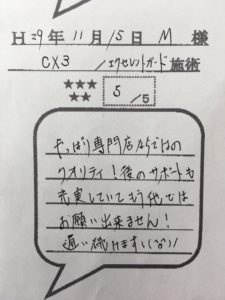 H29年 11月 15日 M 様
CX3 /エクセレントガード 施術
★★★
★★
5 /5
やっぱり専門店ならではの
クオリティ!後のサポートも
充実していてもう他では
お願い出来ません!
通い続けます\(^o^)/